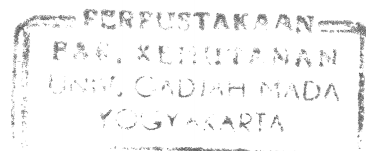 PERPUSTAKAAN
FAK. KEHUTANAN
UNIV. GADJAH MADA
YOGYAKARTA